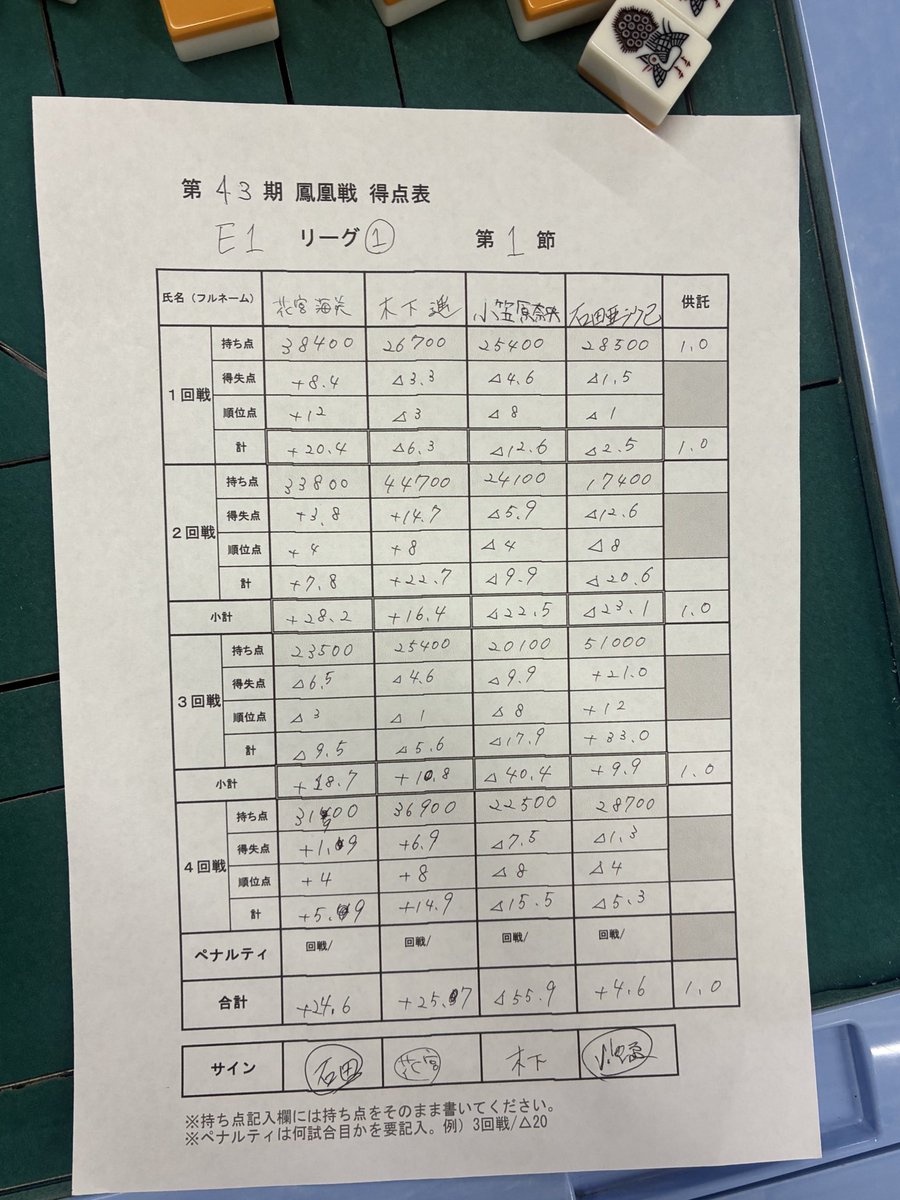 第 43 期 鳳凰戦 得点表
E1 リーグ ① 第 1 節
氏名（フルネーム） 花宮 海美 木下 遥 小笠原奈央 石田亜沙己 供託
1回戦 持ち点 38400 26700 25400 28500 1.0
得失点 +8.4 △3.3 △4.6 △1.5
順位点 +12 △3 △8 △1
計 +20.4 △6.3 △12.6 △2.5 1.0
2回戦 持ち点 33800 44700 24100 17400
得失点 +3.8 +14.7 △5.9 △12.6
順位点 +4 +8 △4 △8
計 +7.8 +22.7 △9.9 △20.6
小計 +28.2 +16.4 △22.5 △23.1 1.0
3回戦 持ち点 23500 25400 20100 51000
得失点 △6.5 △4.6 △9.9 +21.0
順位点 △3 △1 △8 +12
計 △9.5 △5.6 △17.9 +33.0
小計 +18.7 +10.8 △40.4 +9.9 1.0
4回戦 持ち点 31900 36900 22500 28700
得失点 +1.9 +6.9 △7.5 △1.3
順位点 +4 +8 △8 △4
計 +5.9 +14.9 △15.5 △5.3
ペナルティ 回戦/ 回戦/ 回戦/ 回戦/
合計 +24.6 +25.7 △55.9 +4.6 1.0
サイン 石田 花宮 木下
※持ち点記入欄には持ち点をそのまま書いてください。
※ペナルティは何試合目かを要記入。例）3回戦/△20